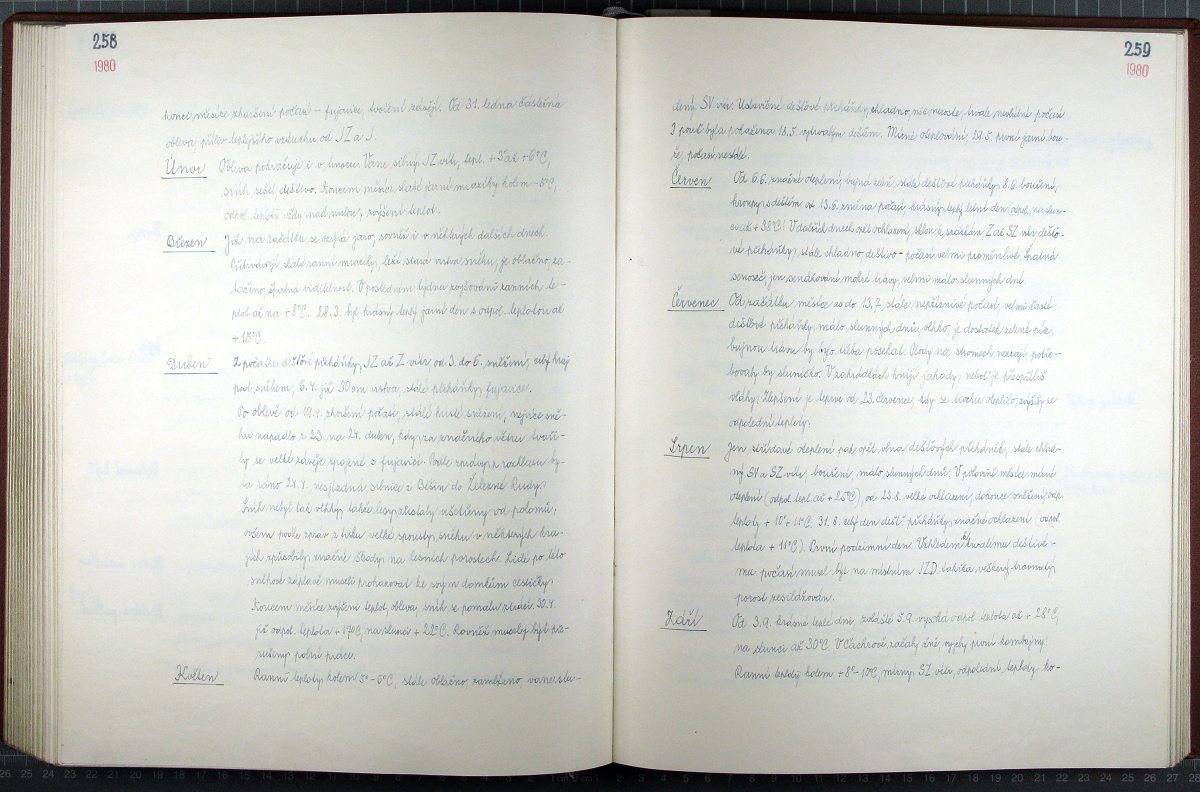 258
1980
konci měsíce zhoršení počasí – fujavice, tvoření závějí. Od 31. ledna částečná
obleva, příliv teplejšího vzduchu od JZ a J.
Únor Obleva pokračuje i v únoru. Vane silný JZ vítr, tepl. +3° až +6°C,
sníh sešel, deštivo. Koncem měsíce slabé ranní mrazíky kolem –5°C,
odpol. teploty vždy nad nulou, zvýšení teplot.
Březen Již na začátku se ozývá jaro, rovněž i v některých dalších dnech.
Přetrvávají slabé ranní mrazíky, leží stará vrstva sněhu, je oblačno, za-
taženo, špatná viditelnost. V posledním týdnu zvyšování ranních te-
plot až na +8°C. 28.3. byl krásný teplý jarní den s odpol. teplotou až
+15°C.
Duben Z počátku dešťové přeháňky, JZ až Z vítr, od 3. do 6. sněžení, celý kraj
pod sněhem, 6.4. již 30 cm vrstva, stálé přeháňky, fujavice.
Po oblevě od 19.4. zhoršení počasí, stálé husté sněžení, nejvíce sně-
hu napadlo z 23. na 24. duben, kdy za značného větru tvoři-
ly se velké závěje spojené s fujavicí. Podle zprávy z rozhlasu by-
la ráno 24.4. nesjízdná silnice z Běšin do Železné Rudy.
Sníh nebyl tak vlhký, takže lesy zůstaly ušetřeny od polomů,
ovšem podle zpráv z tisku velké spousty sněhu v některých kra-
jích způsobily značné škody na lesních porostech. Lidé po této
sněhové záplavě museli prohazovat ke svým domkům cestičky.
Koncem měsíce zvýšení teplot, obleva, sníh se pomalu ztrácí. 30.4.
již odpol. teplota +17°C, na slunci +22°C. Rovněž musely být pře-
rušeny polní práce.
Květen Ranní teploty kolem 3° – 5°C, stále oblačno, zamlženo, vane stu-
259
1980
dený SV vítr. Ustavičné dešťové přeháňky, chladno, nic neroste, trvale nevlídné počasí
I pouť byla pokažena 18.5. vytrvalým deštěm. Mírné oteplování, 29.5. první jarní bou-
ře, počasí nestálé.
Červen Od 6.6. značné oteplení, bujná zeleň, stálé dešťové přeháňky, 8.6. bouření,
kroupy s deštěm, od 13.6. změna počasí, krásný teplý letní den (odpol. na slun-
ci až +38°C). V dalších dnech opět ochlazení, sklon k srážkám. Z až SZ vítr, dešťo-
vé přeháňky, stále chladno, deštivo – počasí velmi proměnlivé. Špatná
senoseč, jen sendkování mokré trávy, velmi málo slunných dní.
Červenec Od začátku měsíce až do 13.7. stále nepříznivé počasí, velmi časté
dešťové přeháňky, málo slunných dnů, vlhko, je dostatek zelené píce,
bujnou trávu by bylo třeba posekat. Plody na stromech nezrají, potře-
bovaly by sluníčko. V zahrádkách hnijí jahody, neboť je přespříliš
vláhy. Zlepšení je teprve od 23. července, kdy se trochu oteplilo, zvýšily se
odpolední teploty.
Srpen Jen střídavé oteplení, pak opět vlna dešťových přeháněk, stále chlad-
ný SV a SZ vítr, bouření, málo slunných dnů. V polovině měsíce mírné
oteplení (odpol. tepl. až +25°C), od 23.8. velké ochlazení, dokonce sněžení, odp.
teploty +10° + 11°C. 31.8. celý den dešť. přeháňky, značné ochlazení (odpol.
teplota +11°C). První podzimní den. Vzhledem k trvalému deštivé-
mu počasí musel být na místním JZD takřka veškerý travnatý
porost zesilážován.
Září Od 3.9. krásné teplé dni, zvláště 5.9. vysoká odpol. teplota až +28°C,
na slunci až 30°C. V Čachrově začaly žně, vyjely první kombajny.
Ranní teploty kolem +8° – 10°C, mírný SZ vítr, odpolední teploty ko-